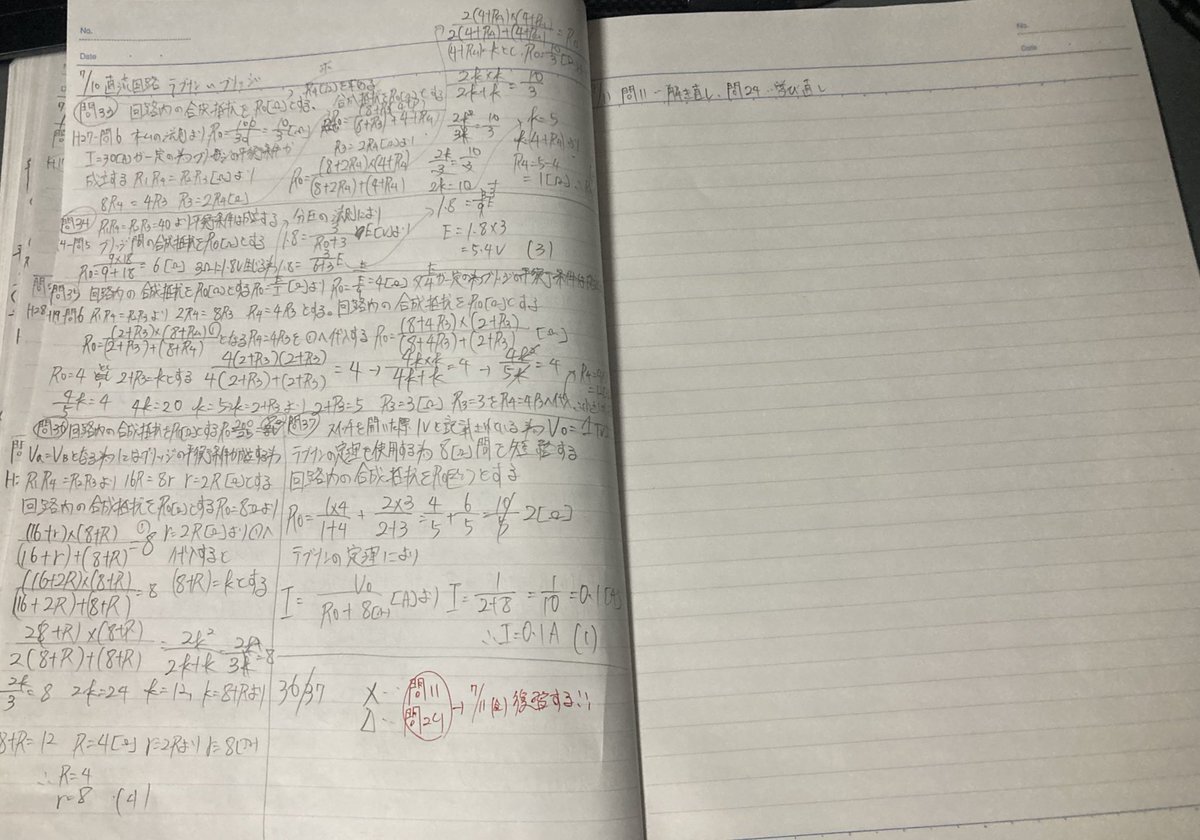 No.
Date
7/10 直流回路 テブナン ブリッジ
問33 回路内の合成抵抗をR0[Ω]とする、
H27-問6 オームの法則より R0=100/30=10/3[Ω]
I=30[A]が一定の為ブリッジの平衡条件が
成立する R1R4=R2R3[Ω]より
8R4=4R3 R3=2R4[Ω]
R4[Ω]を求める
合成抵抗をR0[Ω]とする
R3=2R4[Ω]より
R0=(8+2R4)×(4+R4)/(8+2R4)+(4+R4)
2(4+R4)×(4+R4)/2(4+R4)+(4+R4)=R0
(4+R4)=kとし R0=10/3[Ω]
2k×k/2k+k=10/3
2k²/3k=10/3
2k/3=10/3
2k=10
k=5
k=4+R4より
R4=5-4
=1[Ω]
問34 R1R4=R2R3=40より平衡条件は成立する
ブリッジ間の合成抵抗をR0[Ω]とする
R0=9×18/9+18=6[Ω] 3Ωに1.8V生じる為
分圧の法則により
1.8=3/R0+3 E[V]より
1.8=3/6+3 E
1.8=3/9 E
E=1.8×3
=5.4V (3)
問35 回路内の合成抵抗をR0[Ω]とするR0=E/I[Ω]より R0=E/E/4=4[Ω] 一定の為ブリッジの平衡条件は
問6 R1R4=R2R3より 2R4=8R3 R4=4R3とする。回路内の合成抵抗をR0[Ω]とする
R0=(2+R3)×(8+R4)/(2+R3)+(8+R4) ① となるR4=4R3を①へ代入する R0=(8+4R3)×(2+R3)/(8+4R3)+(2+R3) [Ω]
R0=4 2+R3=kとする 4(2+R3)(2+R3)/4(2+R3)+(2+R3)=4→4k×k/4k+k=4→4k²/5k=4
4/5k=4 4k=20 k=5 k=2+R3より 2+R3=5 R3=3[Ω] R3=3をR4=4R3へ代入
問36 回路内の合成抵抗をR0[Ω]とする
Va=Vbとなる為にはブリッジの平衡条件が成立する為
R1R4=R2R3より 16R=8r r=2R[Ω]とする
回路内の合成抵抗をR0[Ω]とするR0=8Ωより
(16+r)×(8+R)/(16+r)+(8+R)=8 ① r=2R[Ω]より①へ
代入すると
(16+2R)×(8+R)/(16+2R)+(8+R)=8 (8+R)=kとする
2(8+R)×(8+R)/2(8+R)+(8+R)=2k²/2k+k=2k²/3k=8
2k/3=8 2k=24 k=12, k=8+Rより
8+R=12 R=4[Ω] r=2Rより r=8[Ω]
∴R=4
r=8 (4)
問37 スイッチを開いた際1Vと記載されている為 V0=1[V]
テブナンの定理を使用する為 8[Ω]間を短絡する
回路内の合成抵抗をR0[Ω]とする
R0=1×4/1+4+2×3/2+3=4/5+6/5=10/5=2[Ω]
テブナンの定理により
I=V0/R0+8[Ω] [A]より I=1/2+8=1/10=0.1[A]
∴I=0.1A (1)
36/37
×… 問11
△… 問24 →7/11(金)復習する!!
No.
Date
7/11 問11-解き直し、問24-学び直し